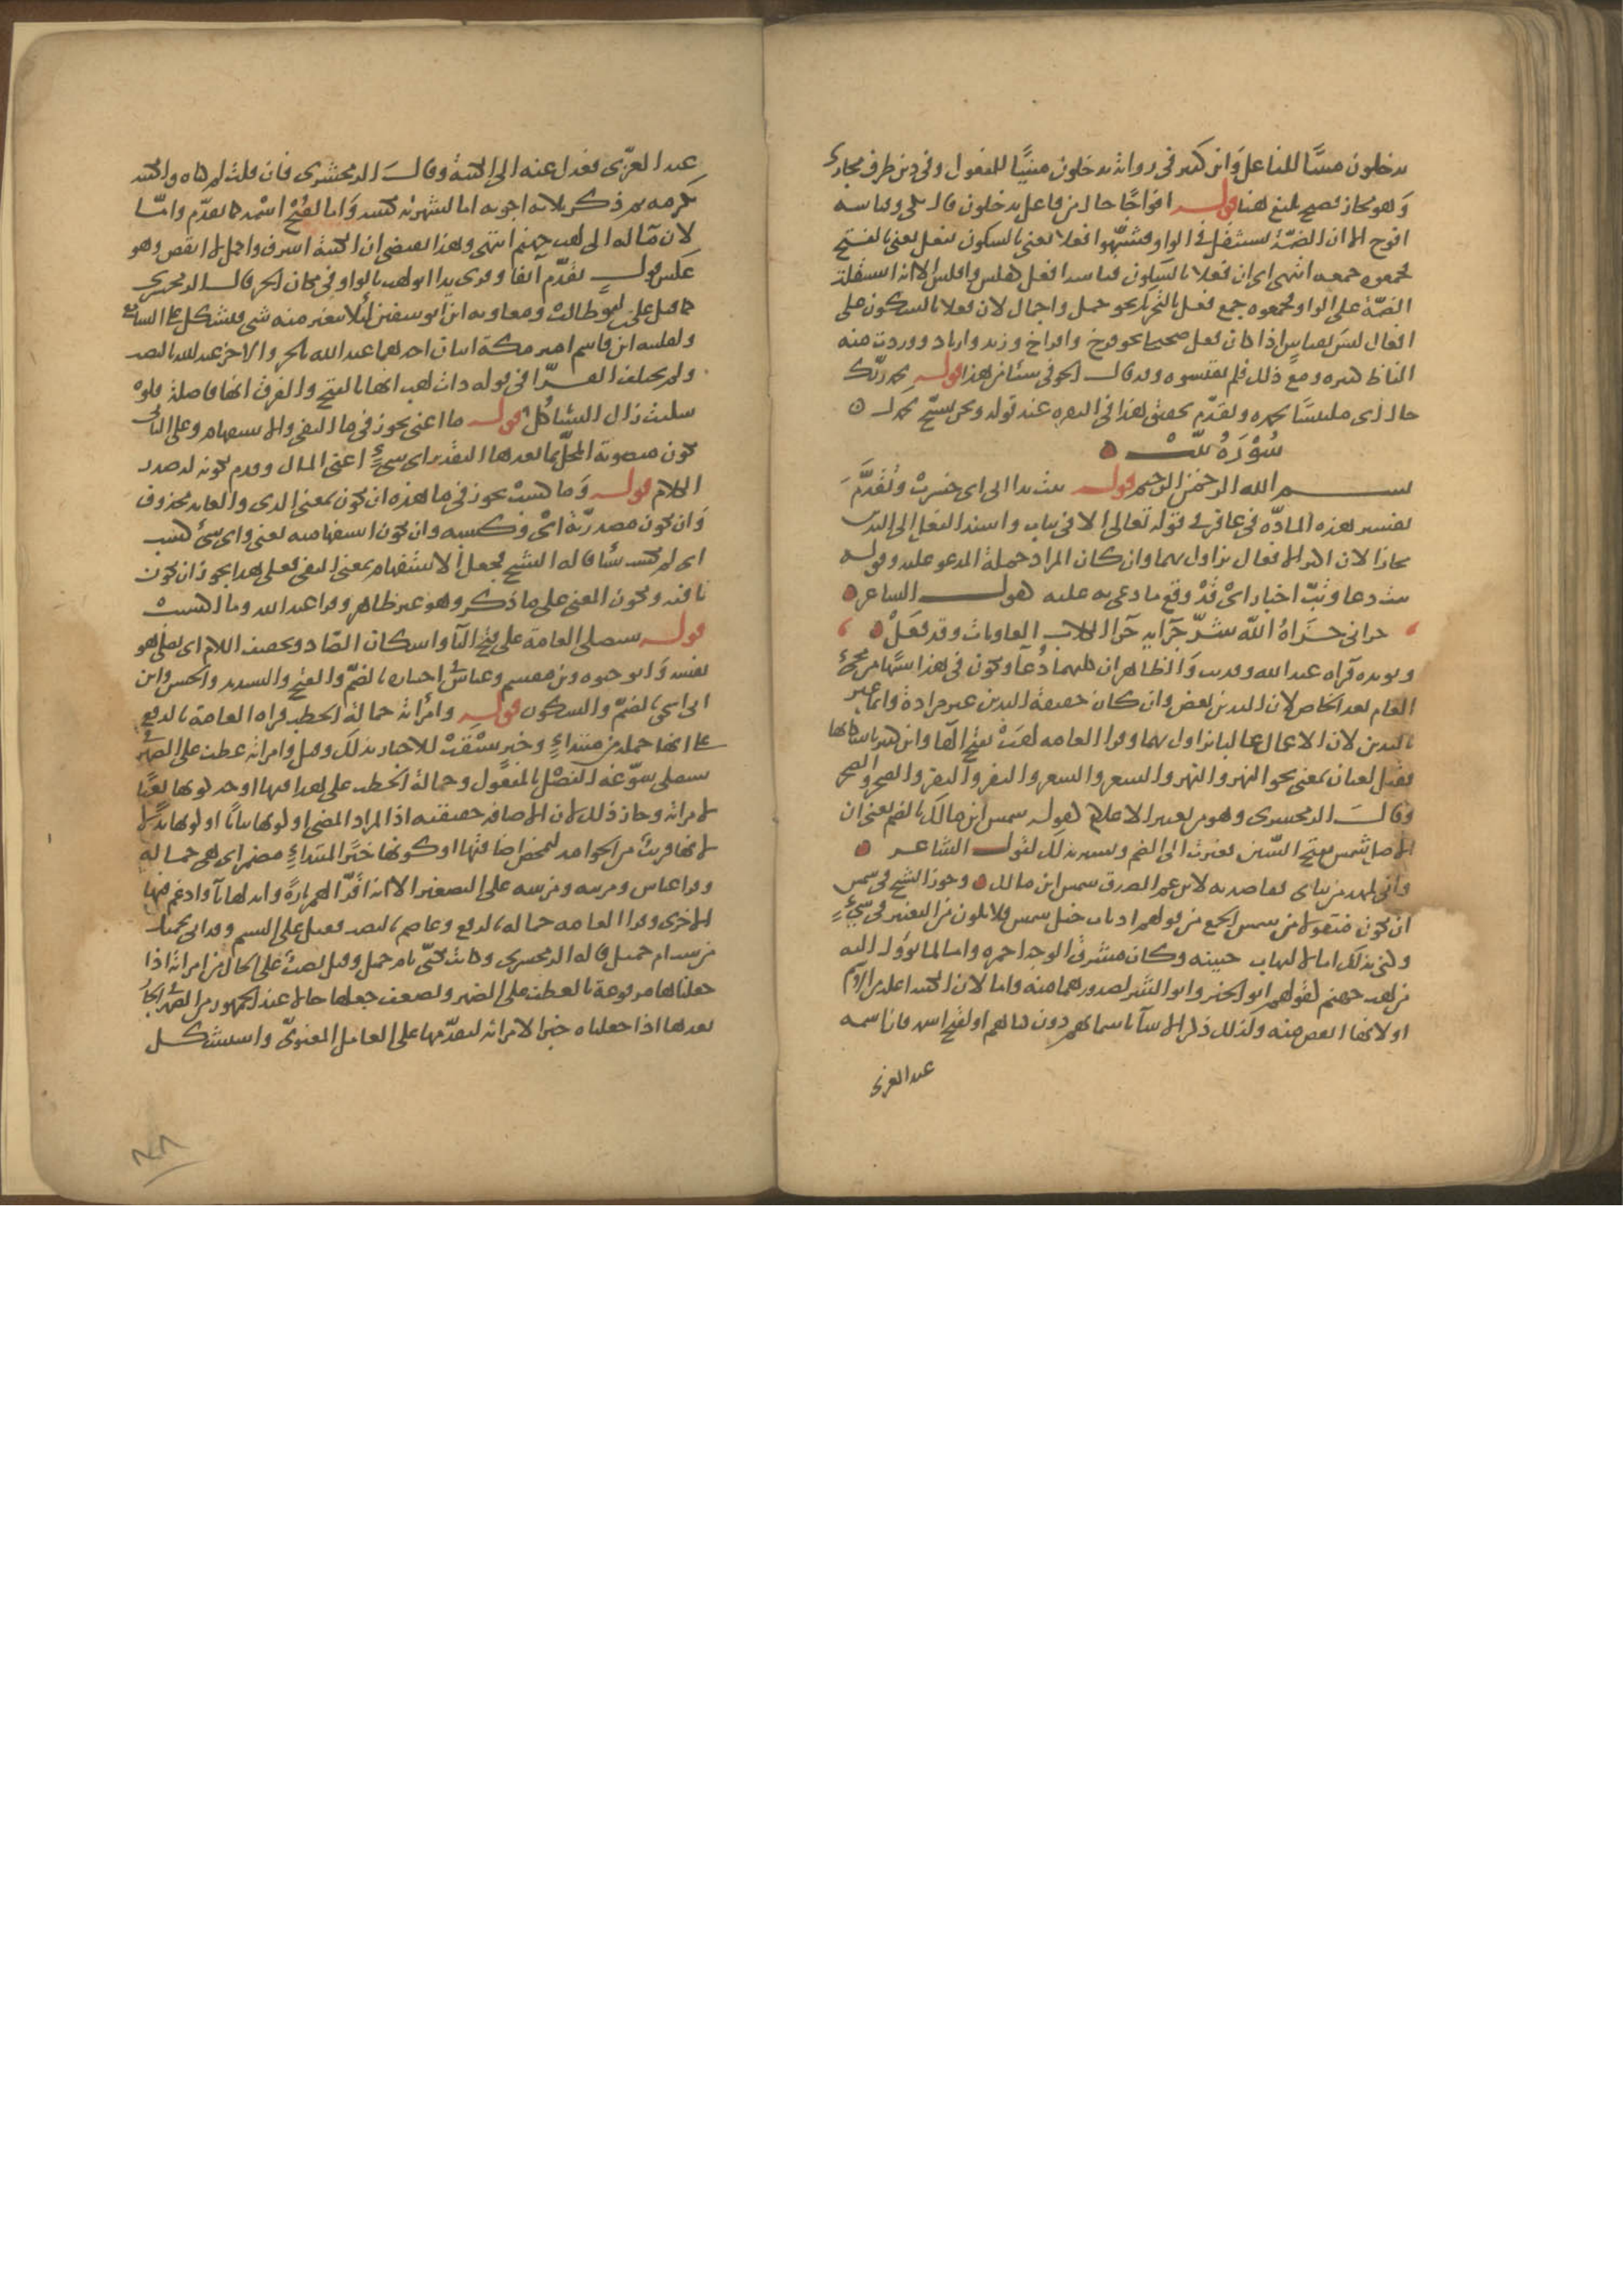 يدخلون مبنيا للفاعل وابن كثير في رواية يدخلون مبنيًا للمفعول وفي دين ظرف مجازى
وهو مجاز فصيح بليغ هنا قوله افواجًا حال من فاعل يدخلون قال مكي وقياسه
افوج الا ان الضمة تستثقل في الواو فشبهوا فعلا يعني بالسكون بفعل يعني بالفتح
فجمعوه جمعه انتهى اى ان فعلا بالسكون قياسه افعل كفلس وافلس الا انه استثقلت
الضمّة على الواو فجمعوه جمع فعل بالتحريك نحو جمل واجمال لان فعلا بالسكون على
افعال ليس بقياس اذا كان فعل صحيحا نحو فرخ وافراخ وزند وازناد ووردت منه
الفاظ كثيره ومع ذلك فلم يقيسوه وقد قال الحوفي شيئا من هذا قوله بحمد ربّك
حال اى ملتبسًا بحمده وتقدّم تحقيق هذا في البقره عند قوله ونحن نسبّح بحمدك
سُوْرَةُ تبّتْ
بسم الله الرحمن الرحيم قوله تبت يدا ابى اى خسرتْ وتُقدَّمَ
تفسير هذه المادّه في غافر في قوله تعالى الا في تباب واسند الفعل الى اليدين
مجازا لان اكثر الافعال تزاول بهما وان كان المراد جملة المدعو عليه وقوله
تبت دعا وتبّ اخبار اىْ قَدْ وقع ما دعى به عليه كقول الشاعر
جزانى جَزَاهُ اللّه شرّ جَزَايه جَزآ الكلاب العاويات وقد فَعَلْ
ويويده قرآه عبد الله وقد تب وَالظاهر ان كليهما دُعآ ويكون في هذا شبهًا من مجئ
العام بعد الخاص لان اليدين بعض وان كان حقيقة اليدين غير مرادة وانما عبر
باليدين لان الاعمال غالبا تزاول بهما وقرا العامه لهَبْ بفتح الهآ وابن كثير باسكانها
فقيل لغتان بمعنى نحو النهْر والنهَر والشعْر والشعَر والنفر والنفر والصخر والصخر
وقالَ الزمخشرى وهو من تغيير الاعلام كقوله شمس ابن مالك بالضم يعنى ان
الاصل شَمس بفتح الشين فغيرت الى الضم ويشير بذلك لقول الشاعر
وانى لمهد من ثنائى فقاصد به لابن عم الصدق شمس ابن مالك وجوز الشيخ في شمس
ان يكون منقولا من شمس الجمع من قولهم اذناب خيل شمس فلا يكون من التغيير في شئٍ
وكنى بذلك اما لالتهاب جبينه وكان مشرق الوجه احمره واما لما يؤول اليه
من لهب جهنم لقولهم ابو الخير وابو الشر لصدورهما منه واما لان الكنيه اغلب من الاسم
او لانها انقص منه ولذلك ذكر الانبيآ باسمائهم دون كناهم او لقبح اسمه فان اسمه
عبد العزى
عبد العزّى فعدل عنه الى الكنية وقالَ الزمخشرى فان قلت لم كناه والكنيه
تكرمه ثم ذكر ثلاثه اجوبه اما لشهرته بكنيته وَاما لقُبْحِ اسْمه كما تقدّم وامّا
لان مآله الى لهب جهنم انتهى وهذا يقتضى ان الكنية اشرف واكمل لا انقص وهو
عكس قول تقدّم آنفا وقرى يدا ابو لهب بالواو في مكان الجر قال الزمخشرى
كما قيل على بن ابو طالب ومعاويه ابن ابو سفين لئلا يتغير منه شى فيشكل على السامع
ولفليته ابن قاسم امير مكة ابنان احدهما عبد الله بالجر والاخر عبد الله بالنصب
ولم يختلف القرّا في قوله ذات لهب انها بالفتح والفرق انها فاصلة فلوْ
سكنت زال التشاكُل قوله ما اغنى يجوز في ما النفى والاستفهام وعلى الثانى
تكون منصوبة المحلّ بما بعدها التقدير اى شىءٍ اغنى المال وقدم لكونه له صدر
الكلام قوله وَما كسبْ يجوز في ما هذه ان تكون بمعنى الذى والعايد محذوف
وَان تكون مصدريّة اىْ وكسبه وان تكون استفهاميه يعنى واى شئ كسب
اى لم يكسب شيئا قاله الشيخ فجعل الاستفهام بمعنى النفى فعلى هذا يجوز ان تكون
نافيه ويكون المعنى على ما ذكر وهو غير ظاهر وقرا عبد الله وما اكتسبْ
قوله سيصلى العامة على فتح اليآ واسكان الصّاد وتخفيف اللام اى يصلى هو
بنفسه وَابو حيوه وبن مقسم وعباسٌ اختياره بالضمّ والفتح والتشديد والحسن وابن
ابى اسحق بالضمّ والسكون قوله وامْرأته حمالة الحطب قراه العامة بالرفع
على انها جمله من مبتداءٍ وخبرٍ سيْقَتْ للاخبار بذلك وقيل وامراته عطف على الضميْر
سيصلى سوّغه الفَصْل بالمفعول وحمالة الحطب على هذا فيها اوجه كونها نعتًا
لامراته وجاز ذلك لان الاضافه حقيقيه اذا المراد المضى او كونها بيانًا او كونها بدلا
لانها قريبْ من الجوامد لتمحض اضافتها او كونها خبَرًا لمبتداءٍ مضمر اى هى حمالة
وقرا عباس ومريئه ومريته على التصغير الا انه اقَرّ الهمزه تارةً وابدلها يآ وادغم فيها
اخرى وقرا العامه حماله بالرفع وعاصم بالنصب فقيل على الشتم وقد اتى بجميل
من سب ام جميل قاله الزمخشرى وكانت تكنّى بام جميل وقيل نصبٌ على الحال من امراته اذا
جعلناها مرفوعة بالعطف على الضمير ويضعف جعلها حالا عند الجمهور من الضمير الجارّ
بعدها اذا جعلناه خبرا لامراته لتقدّمها على العامل المعنوىّ واستشكل